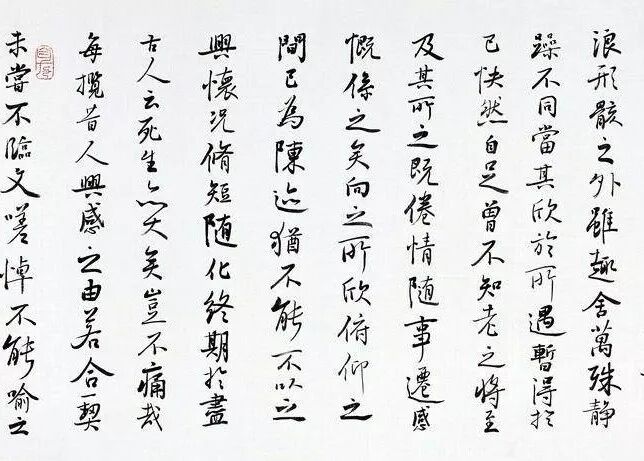 浪形骸之外雖趣舍萬殊静
躁不同當其欣於所遇暫得於
己快然自足曾不知老之將至
及其所之既倦情随事遷感
慨係之矣向之所欣俯仰之
間已為陳迹猶不能不以之
興懷况脩短随化終期於盡
古人云死生亦大矣豈不痛哉
每攬昔人興感之由若合一契
未嘗不臨文嗟悼不能喻之